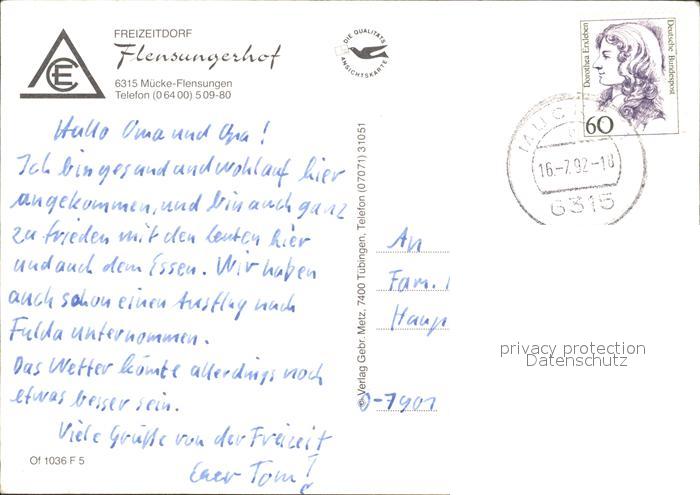 FREIZEITDORF
Flensungerhof
6315 Mücke-Flensungen
Telefon (0 64 00) 5 09-80
CE
DIE QUALITÄTS
ANSICHTSKARTE
Dorothea Erxleben
Deutsche Bundespost
60
16.-7.92-18
6315
Hallo Oma und Opa!
Ich bin gesund und wohlauf hier
angekommen, und bin auch ganz
zufrieden mit den Leuten hier
und auch dem Essen. Wir haben
auch schon einen Ausflug nach
Fulda unternommen.
Das Wetter könnte allerdings noch
etwas besser sein.
Viele Grüße von der Freizeit
Euer Tom!
Of 1036 F 5
© Verlag Gebr. Metz, 7400 Tübingen, Telefon (07071) 31051
An
Fam.
Haup
D-7901
privacy protection
Datenschutz